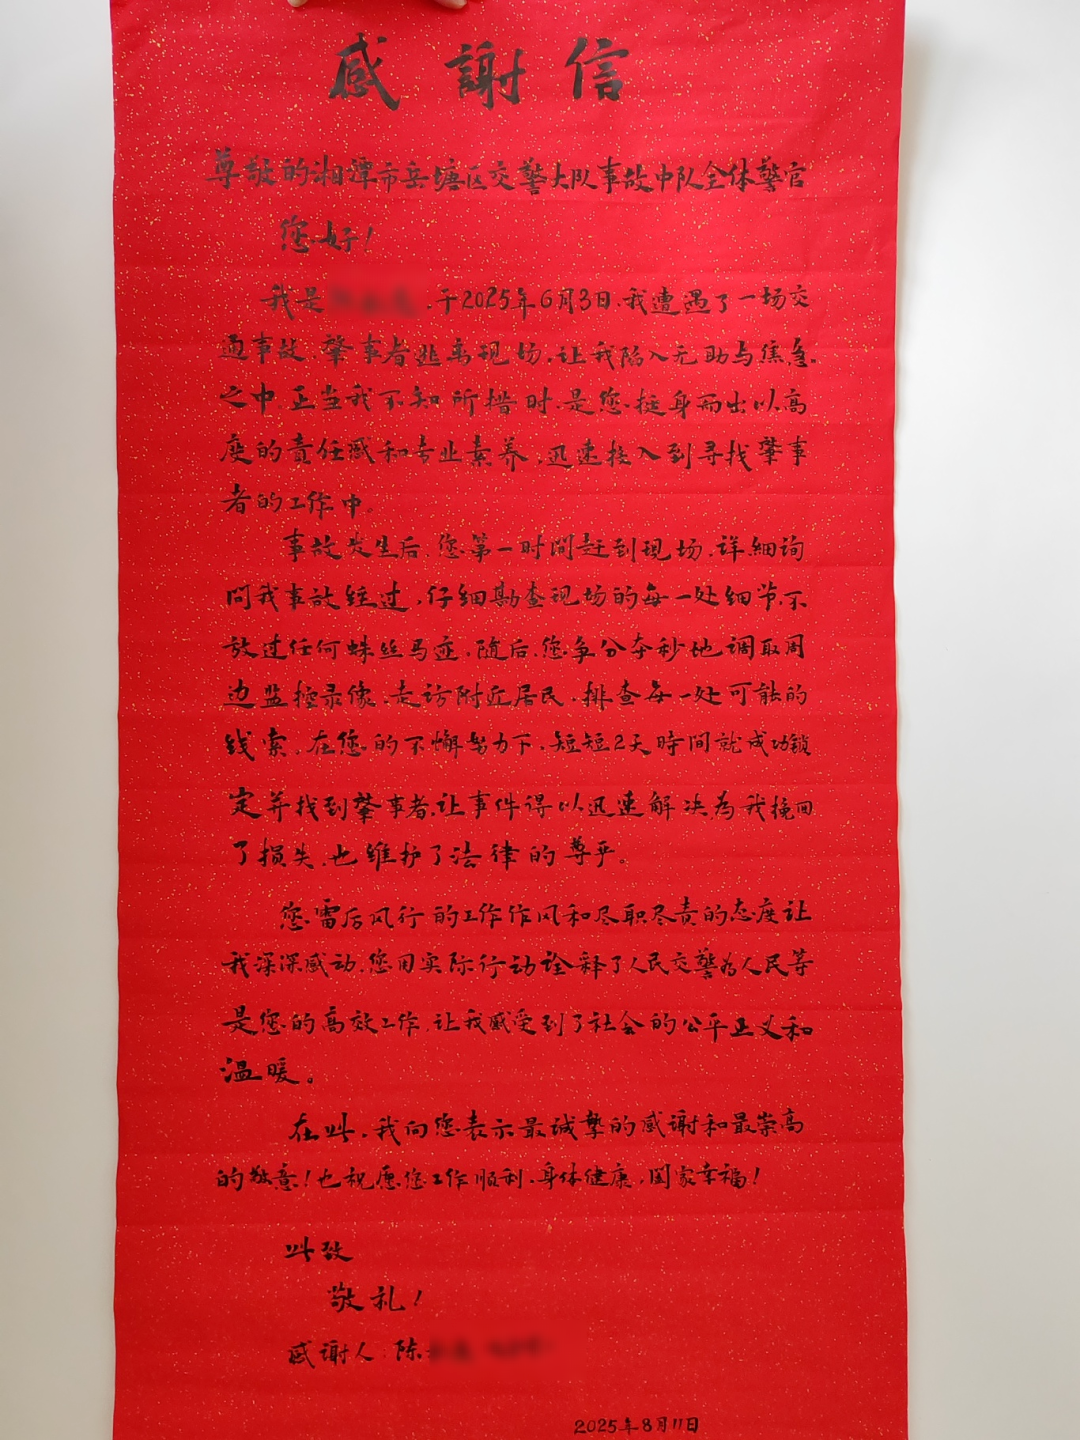 感謝信
尊敬的湘潭市岳塘区交警大队事故中队全体警官
您好！
我是 ，于2025年6月3日，我遭遇了一场交
通事故，肇事者逃离现场，让我陷入无助与焦急。
之中，正当我不知所措时，是您挺身而出以高
度的责任感和专业素养，迅速投入到寻找肇事
者的工作中。
事故发生后，您第一时间赶到现场，详細询
问我事故经过，仔细勘查现场的每一处细节，不
放过任何蛛丝马迹，随后，您争分夺秒地调取周
边监控录像、走访附近居民，排查每一处可能的
线索，在您的不懈努力下，短短2天時间就成功锁
定并找到肇事者，让事件得以迅速解决为我挽回
了损失，也维护了法律的尊严。
您雷厉风行的工作作风和尽职尽责的态度让
我深深感动，您用实际行动诠释了人民交警为人民等
是您的高效工作，让我感受到了社会的公平正义和
温暖。
在此，我向您表示最诚挚的感谢和最崇高
的敬意！也祝愿您工作顺利，身体健康，国家幸福！
此致
敬礼！
感謝人：陈
2025年8月11日